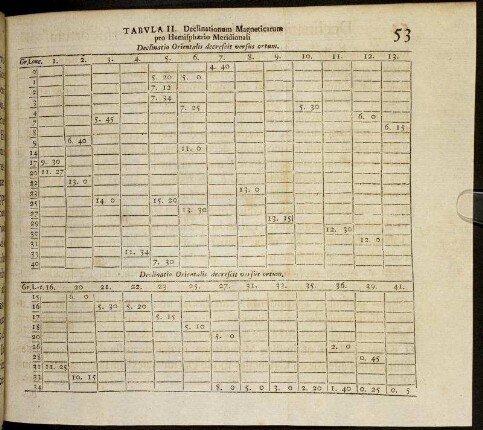 TABVLA II. Declinationum Magneticarum
pro Hemisphærio Meridionali
53
Declinatio Orientalis decrescit versus ortum.
Gr. Long. 1. 2. 3. 4. 5. 6. 7. 8. 9. 10. 11. 12. 13.
0 4. 40
5. 20 5. 0
7. 12
3 7. 34
4 7. 25 5. 30
7 5. 45 6. 0
8 6. 15
9 6. 40
14 11. 0
17 9. 30
20 11. 27
22 13. 0
13. 0
25 14. 0 15. 20
27 13. 30
29 13. 15
30 12. 30
12. 0
33 12. 34
40 7. 30
Declinatio Orientalis decrescit versus ortum.
16. 20. 21. 22. 23 25. 27. 31. 32. 35. 36. 39. 41.
15. 6. 0
16 5. 30 5. 20
17 5. 15
18 5. 10
20 5. 0
26 2. 0
28 0. 45
32 11. 25
33 10. 15
34 8. 0 5. 0 3. 0 2. 20 1. 40 0. 25 0. 5